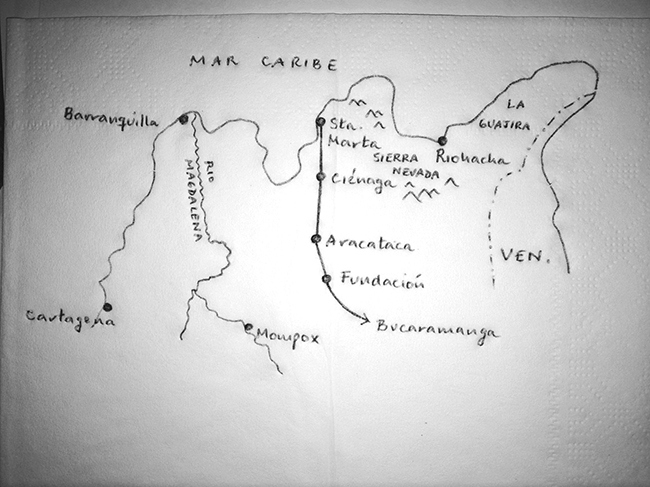 MAR CARIBE
Barranquilla
LA
GUAJIRA
Sta.
Marta
Riohacha
SIERRA
NEVADA
RIO
MAGDALENA
Ciénaga
Aracataca
VEN.
Fundación
Cartagena
Mompox
Bucaramanga